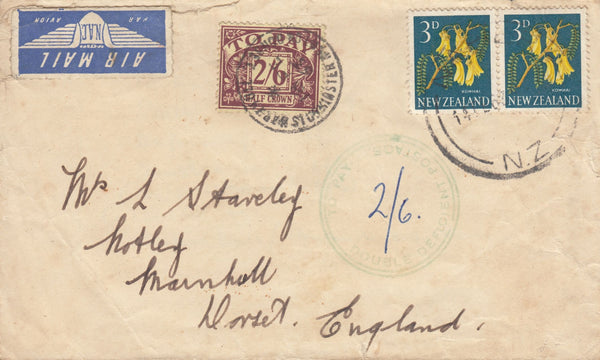 AIR MAIL
PAR AVION
NAC
TO PAY
2/6
HALF CROWN
3D
KOWHAI
NEW ZEALAND
3D
KOWHAI
NEW ZEALAND
N.Z.
DEFICIENT POSTAGE
DOUBLE
TO PAY
2/6.
Mrs L Staveley
Motley
Marnhull
Dorset. England.